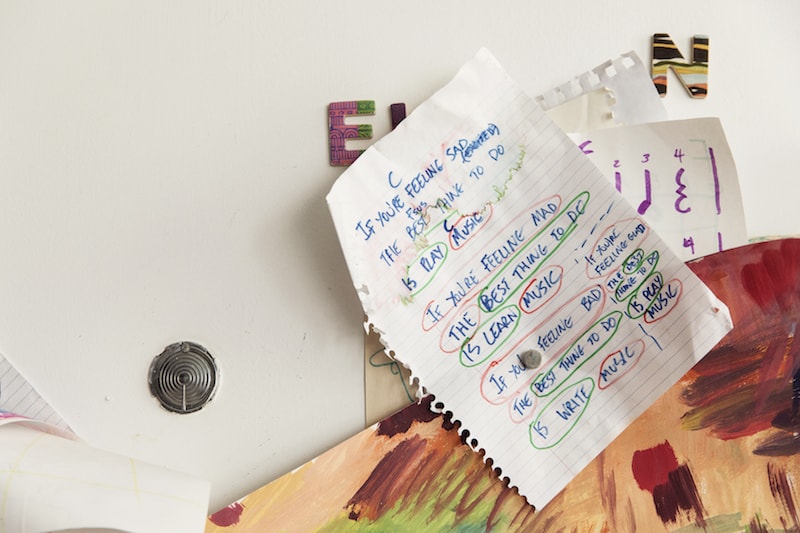 E
N
C
IF YOU'RE FEELING SAD
THE BEST THING TO DO
C
IS PLAY MUSIC
IF YOU'RE FEELING MAD
THE BEST THING TO DO
IS LEARN MUSIC
IF YOU'RE FEELING BAD
THE BEST THING TO DO
IS WRITE MUSIC
IF YOU'RE
FEELING GLAD
THE BEST
THING TO DO
IS PLAY
MUSIC
2 3 4
4